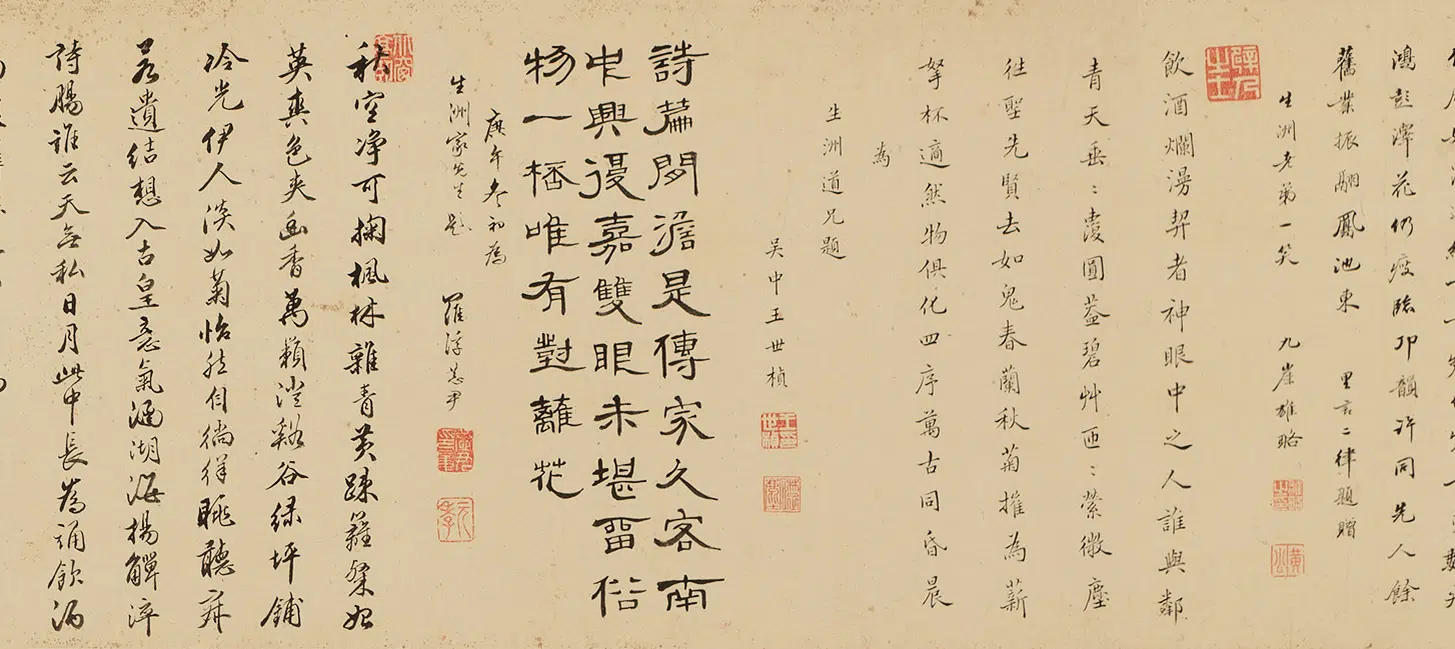 鴻彭澤花仍疲臨邛韻許同先人餘
舊業振翮鳳池東 里言二律題贈
生洲老弟一笑 九崖雄略
飲酒爛湯契者神眼中之人誰與鄰
青天垂〻覆圓蓋碧艸匝〻縈微塵
往聖先賢去如鬼春蘭秋菊摧為薪
擎杯適然物俱化四序萬古同昏晨
為
生洲道兄題
吳中王世楨
詩篇閒澹是傳家久客南
中興復嘉雙眼未堪留俗
物一桮唯有對蘺花
庚午冬初為
生洲家先生題
羅浮
秋空淨可掬楓林雜青黃疎蘺粲始
英爽色夾幽香萬籟澄谿谷綠坪鋪
冷光伊人淡如菊怡然自徜徉眺聽寂
若遺結想入古皇意氣洒湖海揚觶淬
詩腸誰云天無私日月此中長為誦飲酒